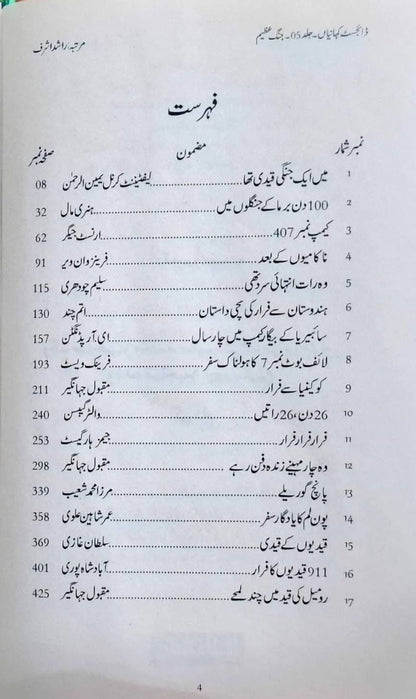 ڈائجسٹ کہانیاں۔ جلد 05۔ جنگ عظیم مرتبہ: راشد اشرف
فہرست
نمبر شمار مضمون صفحہ نمبر
1 میں ایک جنگی قیدی تھا........................لیفٹیننٹ کرنل یمین الرحمٰن 08
2 100 دن برما کے جنگلوں میں........................ہنری مال 32
3 کیمپ نمبر 407........................ارنسٹ جیگر 62
4 ناکامیوں کے بعد........................فرینز وان ویر 91
5 وہ رات انتہائی سرد تھی........................سلیم چودھری 115
6 ہندوستان سے فرار کی سچی داستان........................اتم چند 130
7 سائبیریا کے بیگار کیمپ میں چار سال........................ای۔آر پڈنگٹن 157
8 لائف بوٹ نمبر 7 کا ہولناک سفر........................فرینک ویسٹ 193
9 کو کینیا سے فرار........................مقبول جہانگیر 211
10 26 دن، 26 راتیں........................والٹر گبسن 240
11 فرار فرار فرار........................جیمز ہارگیسٹ 253
12 وہ چار مہینے زندہ دفن رہے........................مقبول جہانگیر 298
13 پانچ گوریلے........................مرزا محمد شعیب 339
14 پون لم کا یادگار سفر........................عمر شاہین علوی 358
15 قیدیوں کے قیدی........................سلطان غازی 369
16 911 قیدیوں کا فرار........................آباد شاہ پوری 401
17 رومیل کی قید میں چند لمحے........................مقبول جہانگیر 425
4